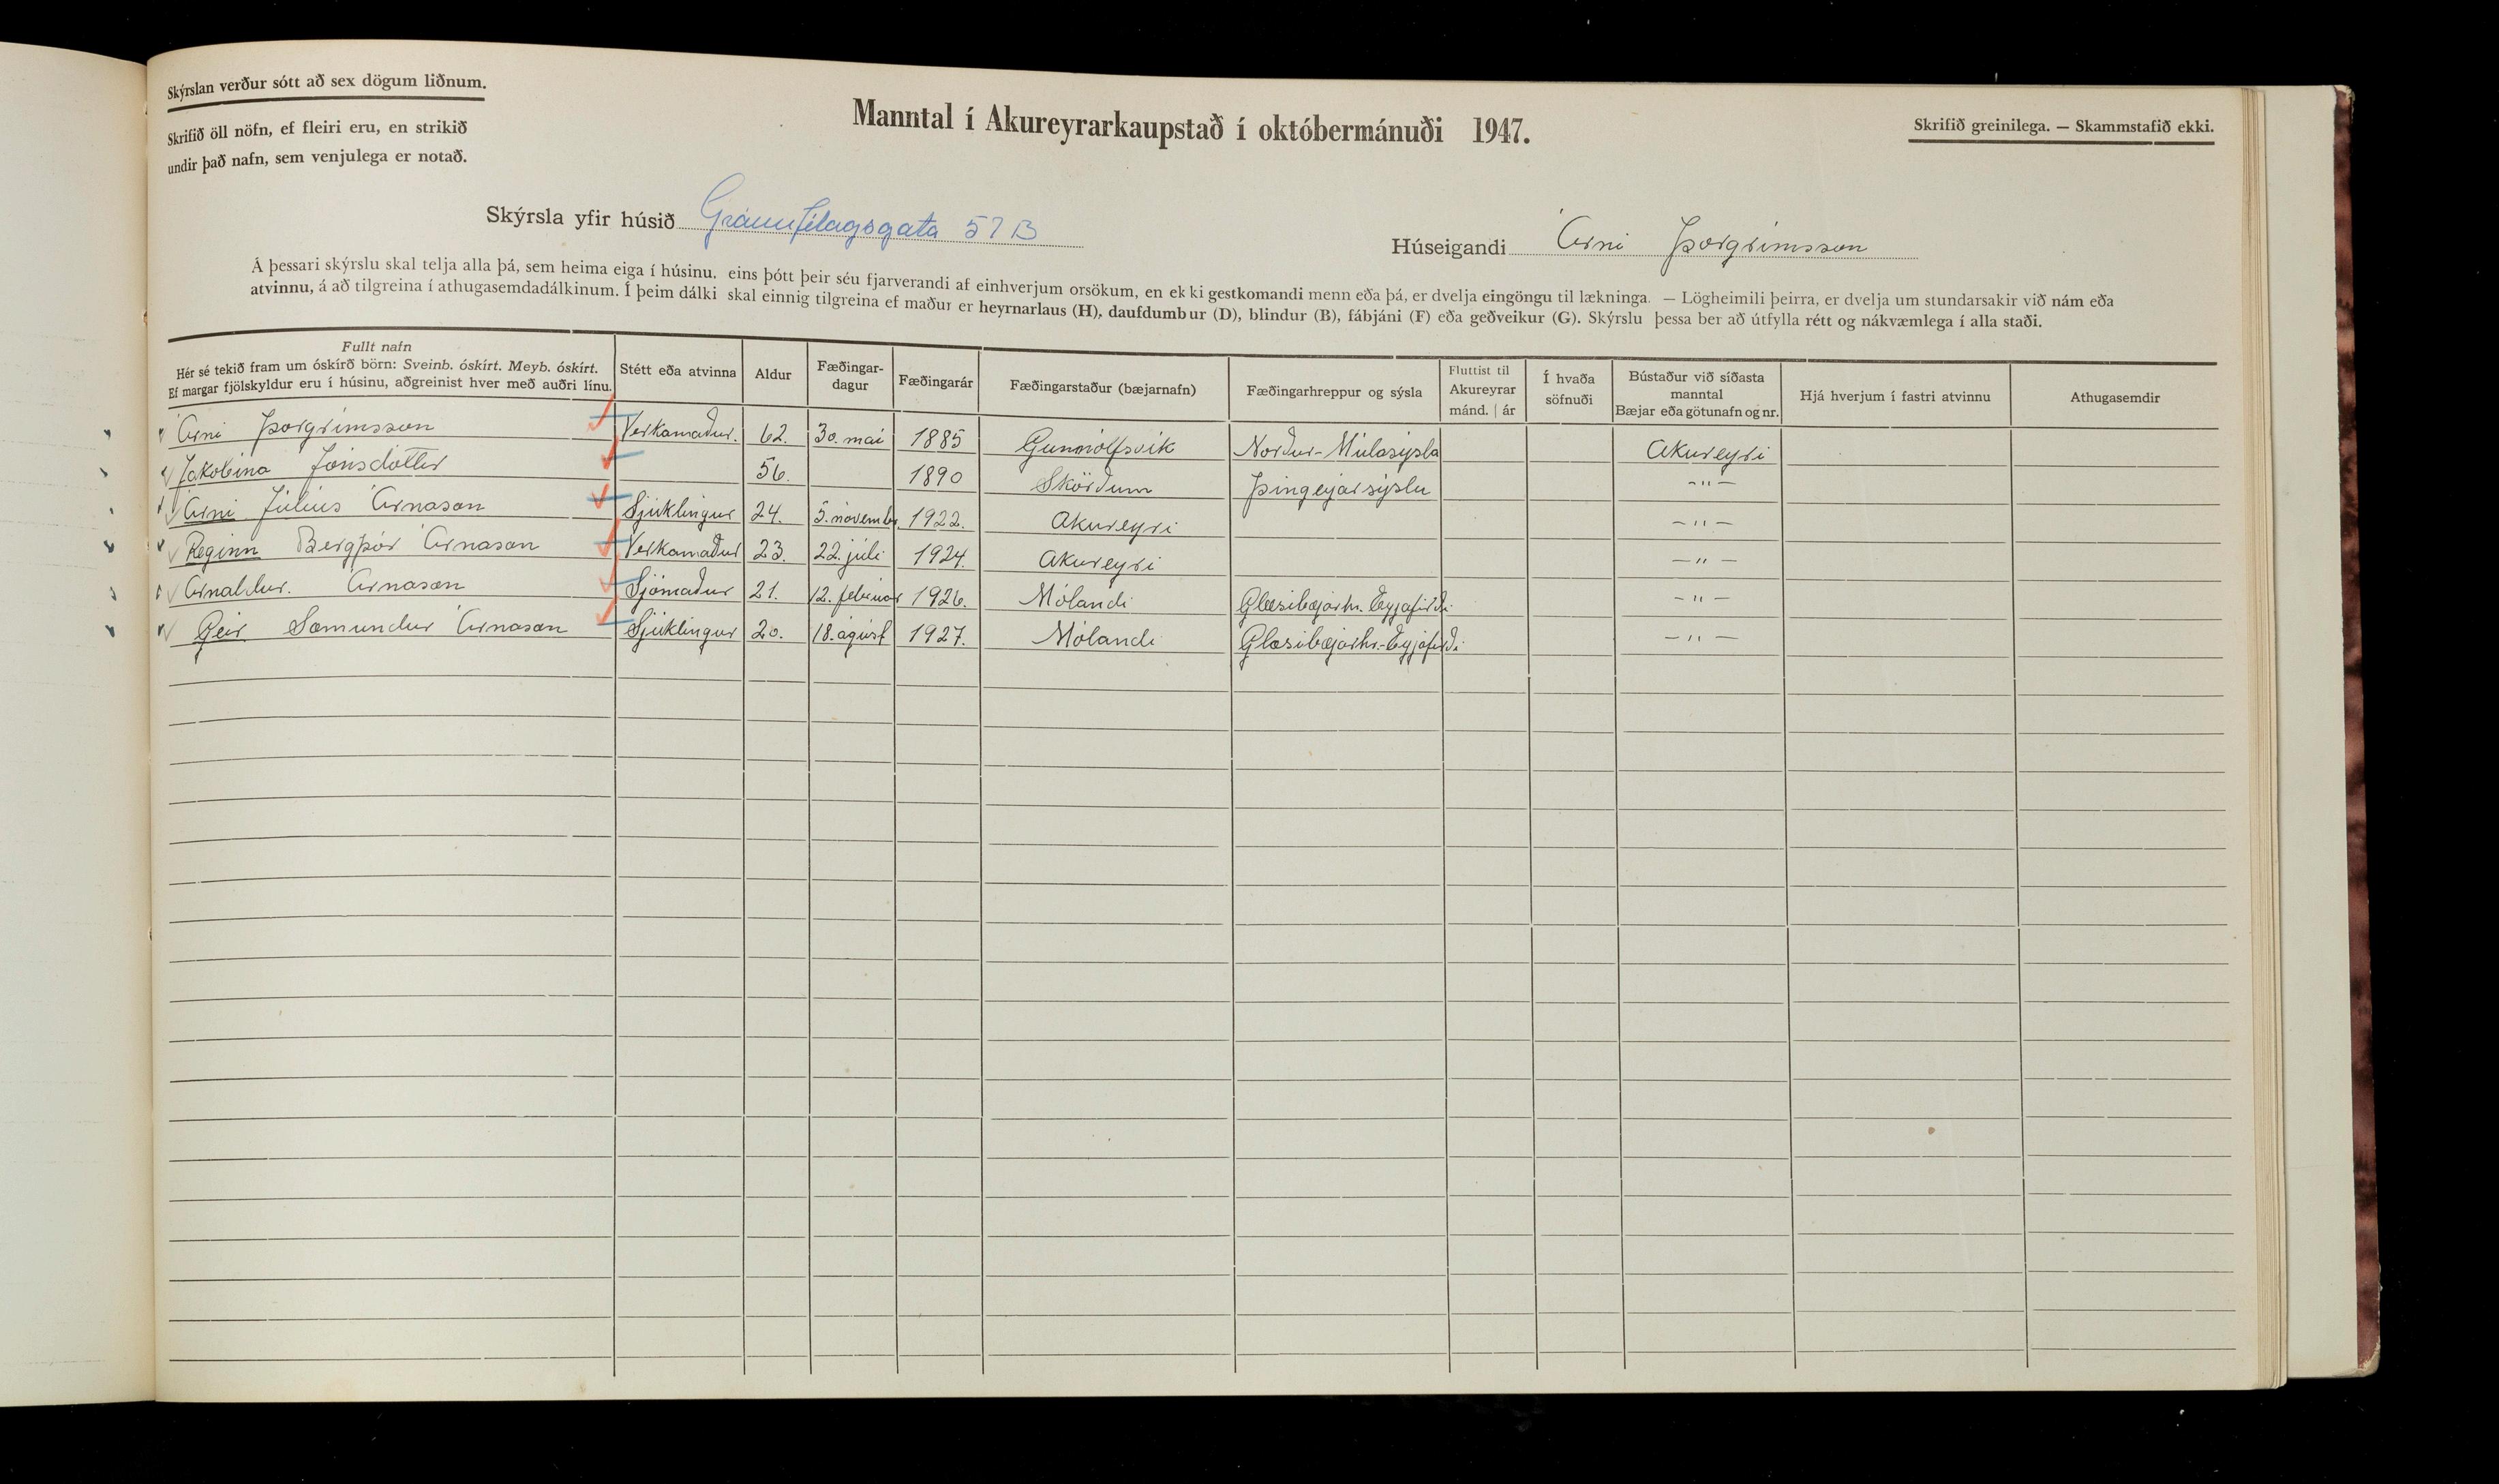 Skýrslan verður sótt að sex dögum liðnum.
Skrifið öll nöfn, ef fleiri eru, en strikið
undir það nafn, sem venjulega er notað.
Manntal í Akureyrarkaupstað í októbermánuði 1947.
Skrifið greinilega. — Skammstafið ekki.
Skýrsla yfir húsið Gránufélagsgata 57B
Húseigandi Árni Þorgrímsson
Á þessari skýrslu skal telja alla þá, sem heima eiga í húsinu, eins þótt þeir séu fjarverandi af einhverjum orsökum, en ekki gestkomandi menn eða þá, er dvelja eingöngu til lækninga. — Lögheimili þeirra, er dvelja um stundarsakir við nám eða
atvinnu, á að tilgreina í athugasemdadálkinum. Í þeim dálki skal einnig tilgreina ef maður er heyrnarlaus (H), daufdumbur (D), blindur (B), fábjáni (F) eða geðveikur (G). Skýrslu þessa ber að útfylla rétt og nákvæmlega í alla staði.
Fullt nafn
Hér sé tekið fram um óskírð börn: Sveinb. óskírt. Meyb. óskírt.
Ef margar fjölskyldur eru í húsinu, aðgreinist hver með auðri línu.
Stétt eða atvinna
Aldur
Fæðingar-
dagur
Fæðingarár
Fæðingarstaður (bæjarnafn)
Fæðingarhreppur og sýsla
Fluttist til
Akureyrar
mánd. | ár
Í hvaða
söfnuði
Bústaður við síðasta
manntal
Bæjar eða götunafn og nr.
Hjá hverjum í fastri atvinnu
Athugasemdir
Árni Þorgrímsson Verkamaður. 62. 30. maí 1885 Gunnólfsvík Norður-Múlasýsla Akureyri
Jakobína Jónsdóttir 56. 1890 Skörðum Þingeyjarsýslu -"-
Árni Júlíus Árnason Sjúklingur 24. 5. november 1922. Akureyri -"-
Reginn Bergþór Árnason Verkamaður 23. 22. júlí 1924. Akureyri -"-
Arnaldur. Árnason Sjómaður 21. 12. febrúar 1926. Mólandi Glæsibæjarhr. Eyjafirði. -"-
Geir Sæmundur Árnason Sjúklingur 20. 18. ágúst 1927. Mólandi Glæsibæjarhr.-Eyjafirði. -"-